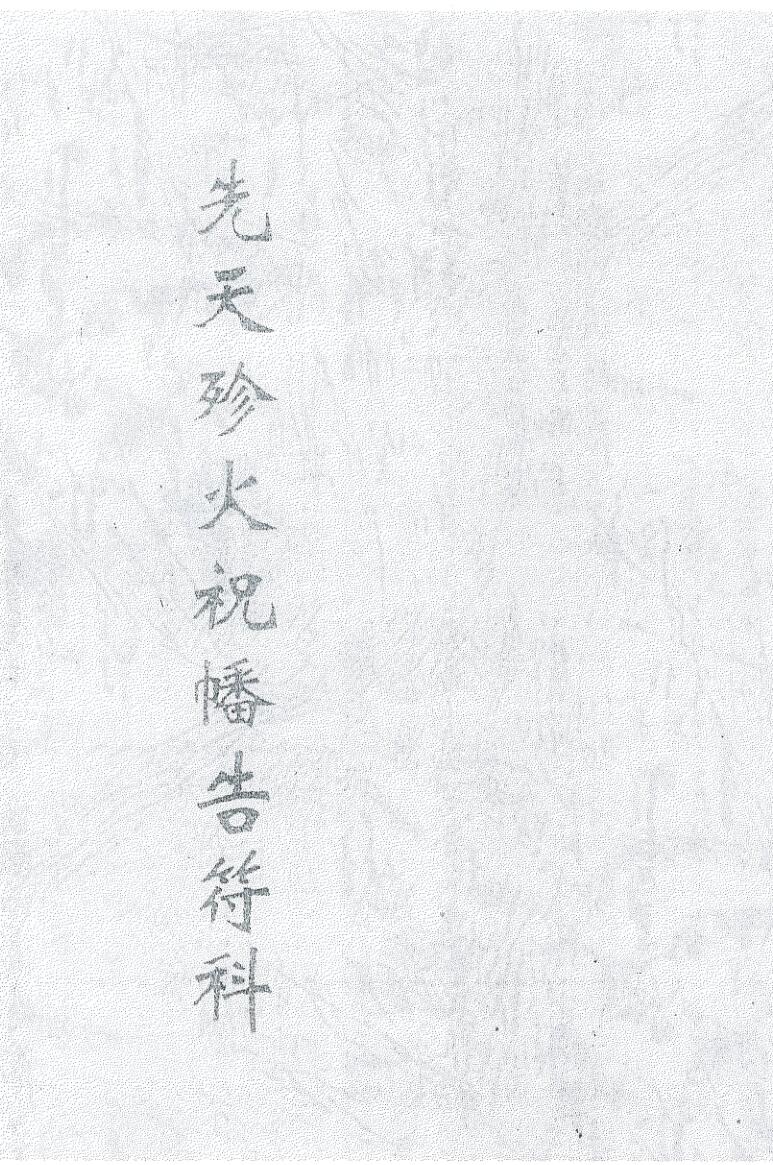 先天殄火祝幡告符科